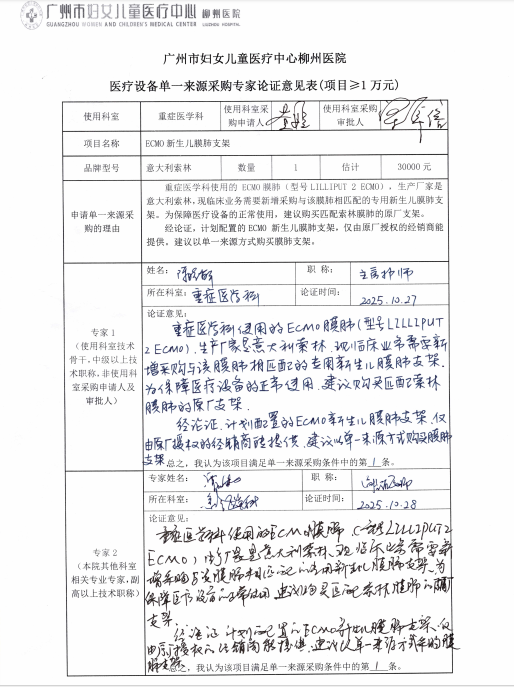 广州市妇女儿童医疗中心 柳州医院
GUANGZHOU WOMEN AND CHILDREN'S MEDICAL CENTER LIUZHOU HOSPITAL
广州市妇女儿童医疗中心柳州医院
医疗设备单一来源采购专家论证意见表(项目≥1 万元)
使用科室 重症医学科 使用科室采购申请人 使用科室采购审批人
项目名称 ECMO 新生儿膜肺支架
品牌型号 意大利索林 数量 1 估计 30000 元
申请单一来源采购的理由
重症医学科使用的 ECMO 膜肺（型号 LILLIPUT 2 ECMO），生产厂家是
意大利索林，现临床业务需要新增采购与该膜肺相匹配的专用新生儿膜肺支
架。为保障医疗设备的正常使用，建议购买匹配索林膜肺的原厂支架。
经论证，计划配置的 ECMO 新生儿膜肺支架，仅由原厂授权的经销商能
提供。建议以单一来源方式购买膜肺支架。
专家 1
（使用科室技术
骨干,中级以上技
术职称,非使用科
室采购申请人及
审批人）
姓名： 职 称： 主管护师
所在科室： 重症医学科 论证时间： 2025.10.27
论证意见：
重症医学科使用的ECMO膜肺(型号LILLIPUT
2 ECMO)、生产厂家是意大利索林、现临床业务需要新
增采购与该膜肺相匹配的专用新生儿膜肺支架.
为保障医疗设备的正常使用、建议购买匹配索林
膜肺的原厂支架.
经论证、计划配置的ECMO新生儿膜肺支架、仅
由原厂授权的经销商能提供、建议以单一来源方式购买膜肺
支架 总之，我认为该项目满足单一来源采购条件中的第 1 条。
专家 2
（本院其他科室
相关专业专家,副
高以上技术职称）
专家姓名： 职 称：
所在科室： 论证时间： 2025.10.28
论证意见：
重症医学科使用的ECMO膜肺（型号LILLIPUT 2
ECMO）,生产厂家是意大利索林、现临床业务需要新
增采购与该膜肺相匹配的专用新生儿膜肺支架、为
保障医疗设备的正常使用、建议购买匹配索林膜肺的原厂
支架.
经论证、计划配置的ECMO新生儿膜肺支架、仅
由原厂授权的经销商能提供、建议以单一来源方式采购膜
肺支架. 总之，我认为该项目满足单一来源采购条件中的第 1 条。